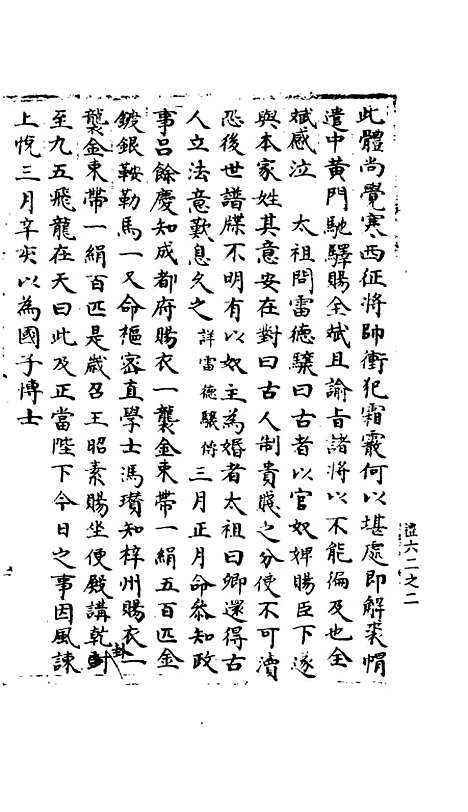 此體尚覺寒西征將帥衝犯霜霰何以堪處即解裘帽
遣中黃門馳驛賜全斌且諭旨諸將以不能徧及也全
斌感泣　太祖問雷德驤曰古者以官奴婢賜臣下遂
與本家姓其意安在對曰古人制貴賤之分使不可瀆
恐後世譜牒不明有以奴主為婚者太祖曰卿還得古
人立法意歎息久之詳雷德驤傳三月正月命叅知政
事吕餘慶知成都府賜衣一襲金束帶一絹五百匹金
鍍銀鞍勒馬一又命樞密直學士馮瓚知梓州賜衣一
襲金束帶一絹百匹是嵗召王昭素賜坐便殿講乾卦
至九五飛龍在天曰此及正當陛下今日之事因風諫
上悅三月辛亥以為國子博士
禮六二之二
卦